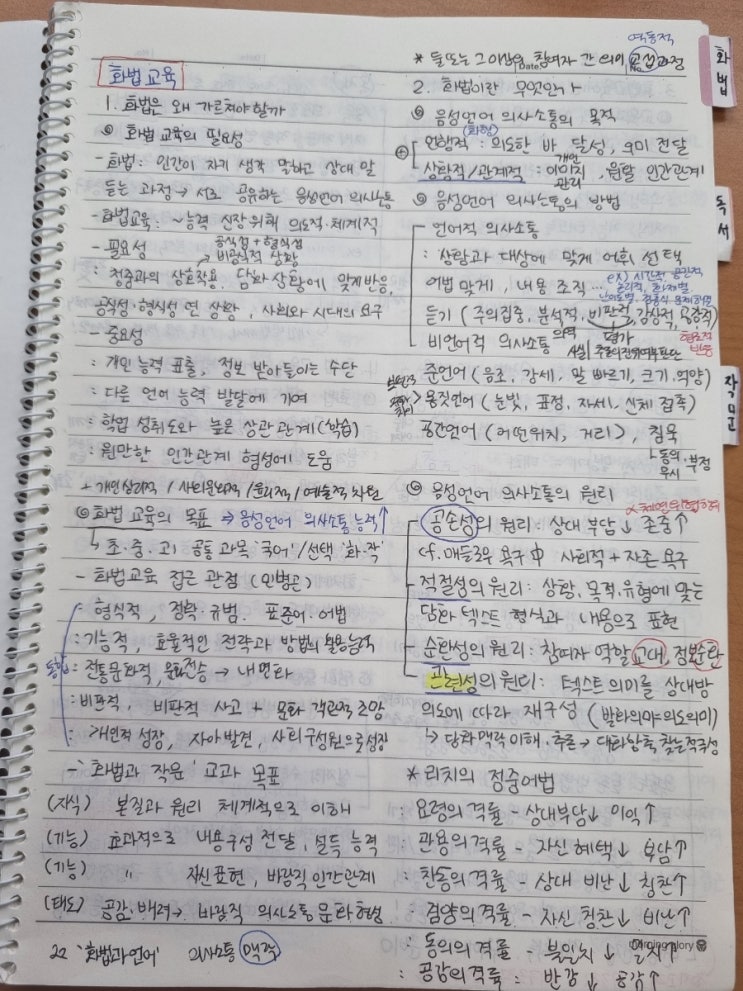 화법교육
1. 화법은 왜 가르쳐야 할까
◎ 화법 교육의 필요성
- 화법: 인간이 자기 생각 말하고 상대 말
듣는 과정 → 서로 공유하는 음성언어 의사소통
- 화법교육: ~능력 신장위해 의도적·체계적
- 필요성
공식성+형식성
→ 비공식적 상황
: 청중과의 상호작용, 담화 상황에 맞게 반응
공식성·형식성 띤 상황, 사회와 시대의 요구
- 중요성
: 개인 능력 표출, 정보 받아들이는 수단
: 다른 언어 능력 발달에 기여
: 학업 성취도와 높은 상관 관계 (학습)
: 원만한 인간관계 형성에 도움
+ 개인심리적 / 사회문화적 / 윤리적 / 예술적 차원
◎ 화법 교육의 목표 → 음성언어 의사소통 능력↑
↳ 초·중·고1 공통 과목 '국어' / 선택 '화·작'
- 화법교육 접근 관점 (민병곤)
통합
: 형식적, 정확·규범. 표준어·어법
: 기능적, 효율적인 전략과 방법의 활용능력
: 전통문화적, 문화전승 → 내면화
: 비판적, 비판적 사고 + 문화 객관적 조망
: 개인적 성장, 자아 발견, 사회구성원으로 성장
- '화법과 작문' 교과 목표
(지식) 본질과 원리 체계적으로 이해
(기능) 효과적으로 내용구성 전달, 설득 능력
(기능) " 자신표현, 바람직 인간관계
(태도) 공감·배려 → 바람직 의사소통 문화 형성
22 '화법과 언어' 의사소통 맥락
역동적
* 둘 또는 그 이상의 참여자 간 의미 교섭과정
2. 화법이란 무엇인가
◎ 음성언어 의사소통의 목적
(화행)
⊕ 언향적 : 의도한 바 달성, 의미 전달
상황적/관계적 : 개인 이미지 관리, 원활 인간관계
◎ 음성언어 의사소통의 방법
언어적 의사소통
: 상황과 대상에 맞게 어휘 선택
어법 맞게, 내용 조직 …
ex) 시간적, 공간적,
논리적, 화제별,
듣기 (주의집중, 분석적, 비판적, 감상적, 공감적)
평가
협조적
반응
비언어적 의사소통
준언어 (음조, 강세, 말 빠르기, 크기, 억양)
몸짓언어 (눈빛, 표정, 자세, 신체 접촉)
공간언어 (어떤위치, 거리), 침묵
↳ 동의·부정
무시
◎ 음성언어 의사소통의 원리
체면위협행위
공손성의 원리: 상대 부담↓ 존중↑
cf. 매슬로우 욕구 中 사회적 + 자존 욕구
적절성의 원리: 상황, 목적, 유형에 맞는
담화 텍스트 형식과 내용으로 표현
순환성의 원리: 참여자 역할 교대, 정보순환
관련성의 원리: 텍스트 의미를 상대방
의도에 따라 재구성 (발화의미≠의도의미)
↳ 담화맥락 이해, 추론 →
* 리치의 정중어법
: 요령의 격률 - 상대부담↓ 이익↑
: 관용의 격률 - 자신 혜택↓ 부담↑
: 찬동의 격률 - 상대 비난↓ 칭찬↑
: 겸양의 격률 - 자신 칭찬↓ 비난↑
: 동의의 격률 - 불일치↓ 일치↑
: 공감의 격률 : 반감↓ 공감↑
화법
독서
작문
Date.
No.